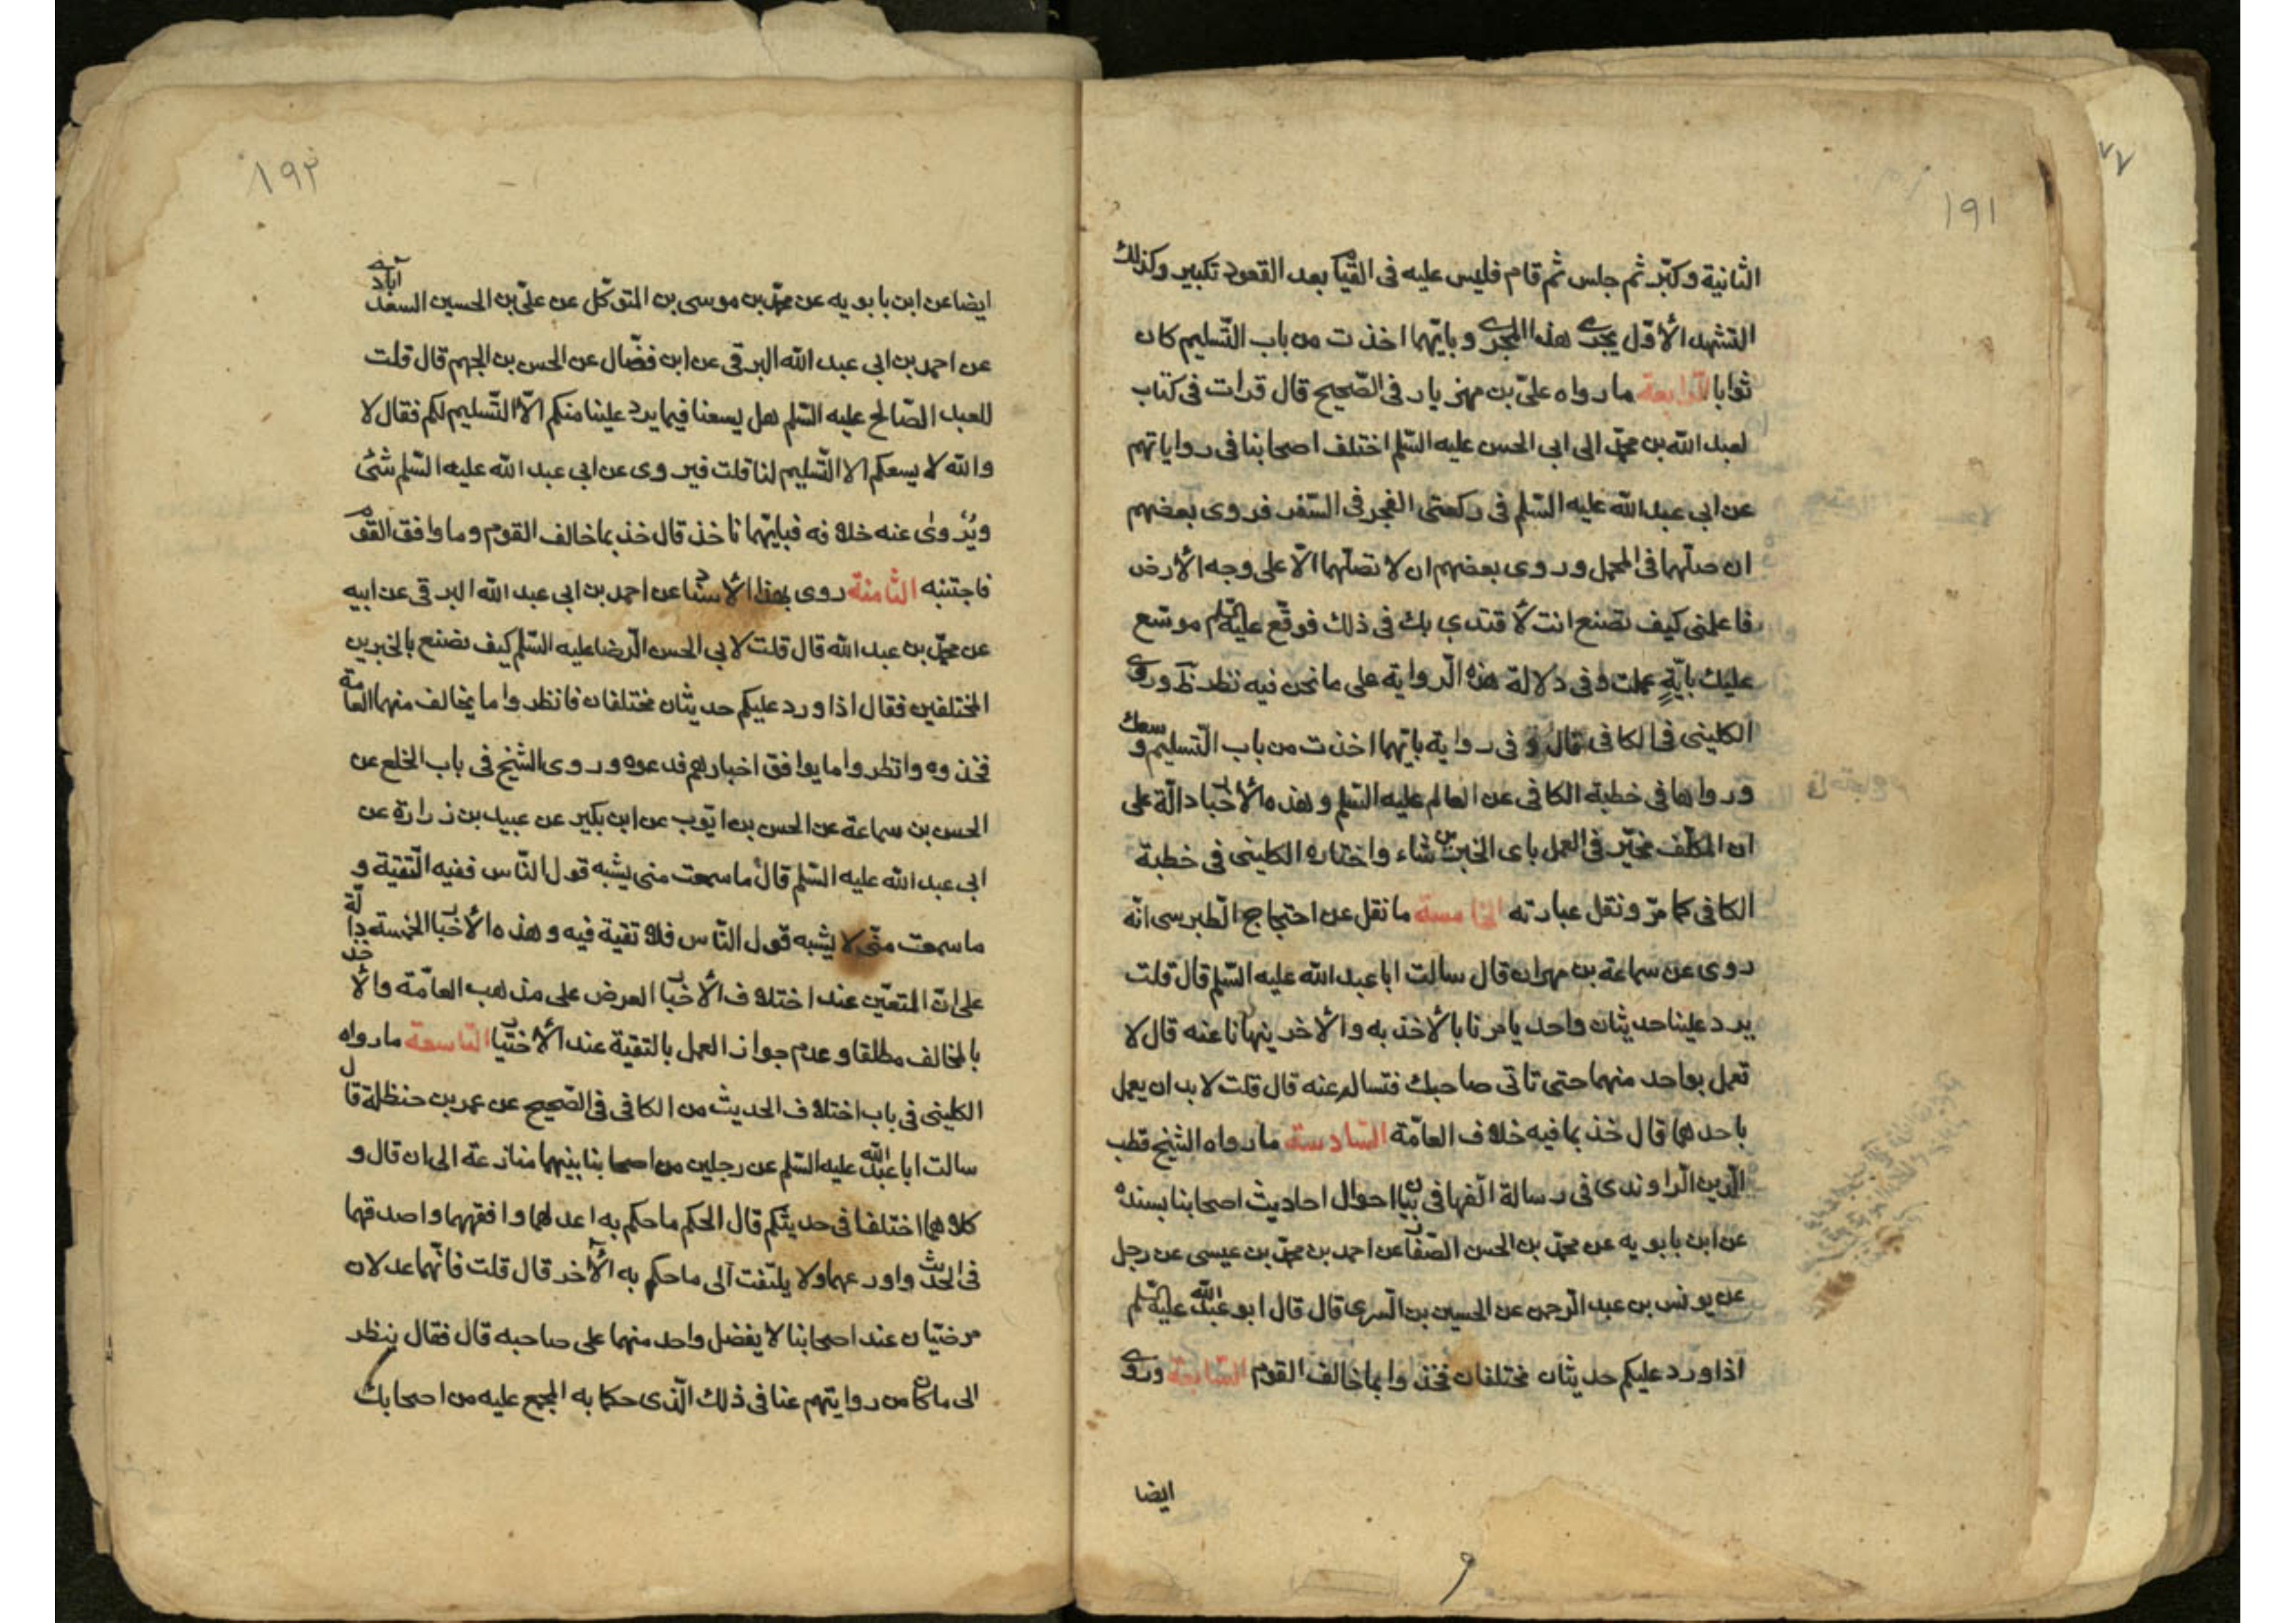 ١٩١
الثانية وكبّر ثم جلس ثم قام فليس عليه فى القيام بعد القعود تكبير وكذلك
التشهد الأوّل يجرى هذا المجرى وبايّهما اخذت من باب التّسليم كان
ثوابا الرابعة مارواه علىّ بن مهزيار فى الصّحيح قال قرات فى كتاب
لعبد الله بن محمّد الى ابى الحسن عليه السّلم اختلف اصحابنا فى رواياتهم
عن ابى عبد الله عليه السّلم فى ركعتى الفجر فى السّفر فروى بعضهم
ان صلّهما فى المحمل وروى بعضهم ان لا تصلّهما الّا على وجه الأرض
فاعلمنى كيف تصنع انت لأقتدى بك فى ذلك فوقّع عليه السّلم موسّع
عليك بايّةٍ عملت وفى دلالة هذه الرّواية على ما نحن فيه نظر وروى
الكلينى فى الكافى قال و فى رواية بايّهما اخذت من باب التّسليم وسعك
ورواها فى خطبة الكافى عن العالم عليه السّلم وهذه الأخبار دالّة على
ان المكلّف مخيّر فى العمل باى الخبرين شاء واختاره الكلينى فى خطبة
الكافى كما مرّ ونقل عبارته الخامسة ما نقل عن احتجاج الطّبرسى انّه
روى عن سماعة بن مهران قال سالت ابا عبد الله عليه السّلم قال قلت
يرد علينا حديثان واحد يامرنا بالأخذ به والأخر ينهانا عنه قال لا
تعمل بواحد منهما حتى تاتى صاحبك فتساله عنه قال قلت لا بد ان يعمل
باحدهما قال خذ بما فيه خلاف العامّة السّادسة مارواه الشيخ قطب
الدّين الرّاوندى فى رسالة الّفها فى بيان احوال احاديث اصحابنا بسنده
عن ابن بابويه عن محمّد بن الحسن الصّفّار عن احمد بن محمّد بن عيسى عن رجل
عن يونس بن عبد الرّحمن عن الحسين بن السّرى قال قال ابو عبد الله عليه السّلم
اذا ورد عليكم حديثان مختلفان فخذوا بما خالف القوم السّابعة وروى
ايضا
١٩٢
ايضا عن ابن بابويه عن محمّد بن موسى بن المتوكّل عن علىّ بن الحسين السعدابادى
عن احمد بن ابى عبد الله البرقى عن ابن فضّال عن الحسن بن الجهم قال قلت
للعبد الصّالح عليه السّلم هل يسعنا فيما يرد علينا منكم الّا التّسليم لكم فقال لا
والله لا يسعكم الا التّسليم لنا قلت فيروى عن ابى عبد الله عليه السّلم شئ
ويُروىٰ عنه خلافه فبايّهما ناخذ قال خذ بما خالف القوم وما وافق القوم
فاجتنبه الثّامنة روى بهذا الأسناد عن احمد بن ابى عبد الله البرقى عن ابيه
عن محمّد بن عبد الله قال قلت لابى الحسن الرّضا عليه السّلم كيف نصنع بالخبرين
المختلفين فقال اذا ورد عليكم حديثان مختلفان فانظروا ما يخالف منهما العامة
فخذوه وانظروا ما يوافق اخبارهم فدعوه وروى الشّيخ فى باب الخلع عن
الحسن بن سماعة عن الحسن بن ايّوب عن ابن بكير عن عبيد بن زرارة عن
ابى عبد الله عليه السّلم قال ما سمعت منى يشبه قول النّاس ففيه التّقية و
ما سمعت منّى لا يشبه قول النّاس فلا تقية فيه وهذه الأخبار الخمسة دالّة
على انّ المتعيّن عند اختلاف الأخبار العرض على مذهب العامّة والأخذ
بالمخالف مطلقا وعدم جواز العمل بالتقية عند الأختيار التاسعة مارواه
الكلينى فى باب اختلاف الحديث من الكافى فى الصّحيح عن عمر بن حنظلة قال
سالت ابا عبد الله عليه السّلم عن رجلين من اصحابنا بينهما منازعة الى ان قال و
كلاهما اختلفا فى حديثكم قال الحكم ما حكم به اعدلهما وافقههما واصدقهما
فى الحديث واورعهما ولا يلتفت الى ما حكم به الأخر قال قلت فانّهما عدلان
مرضيّان عند اصحابنا لا يفضل واحد منهما على صاحبه قال فقال ينظر
الى ما كان من روايتهم عنا فى ذلك الّذى حكما به المجمع عليه من اصحابك